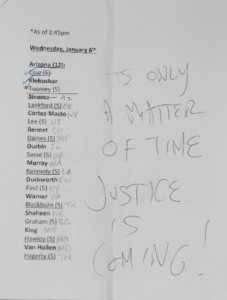 *As of 1:45pm
Wednesday, January 6th
Arizona (12):
Cruz (S)
Klobuchar
Toomey (S)
Sinema - AZ
Lankford (S) OK
Cortez-Masto NV
Lee (S) UT
Bennet CO
Daines (S) MT
Durbin IL
Sasse (S) NE
Murray WA
Kennedy (S) LA
Duckworth IL
Paul (S) KY
Warner VA
Blackburn (S) TN
Shaheen NH
Graham (S) SC
King ME
Hawley (S) MO
Van Hollen MD
Hagerty (S) TN
ITS ONLY
A MATTER
OF TIME
JUSTICE
IS
COMING!